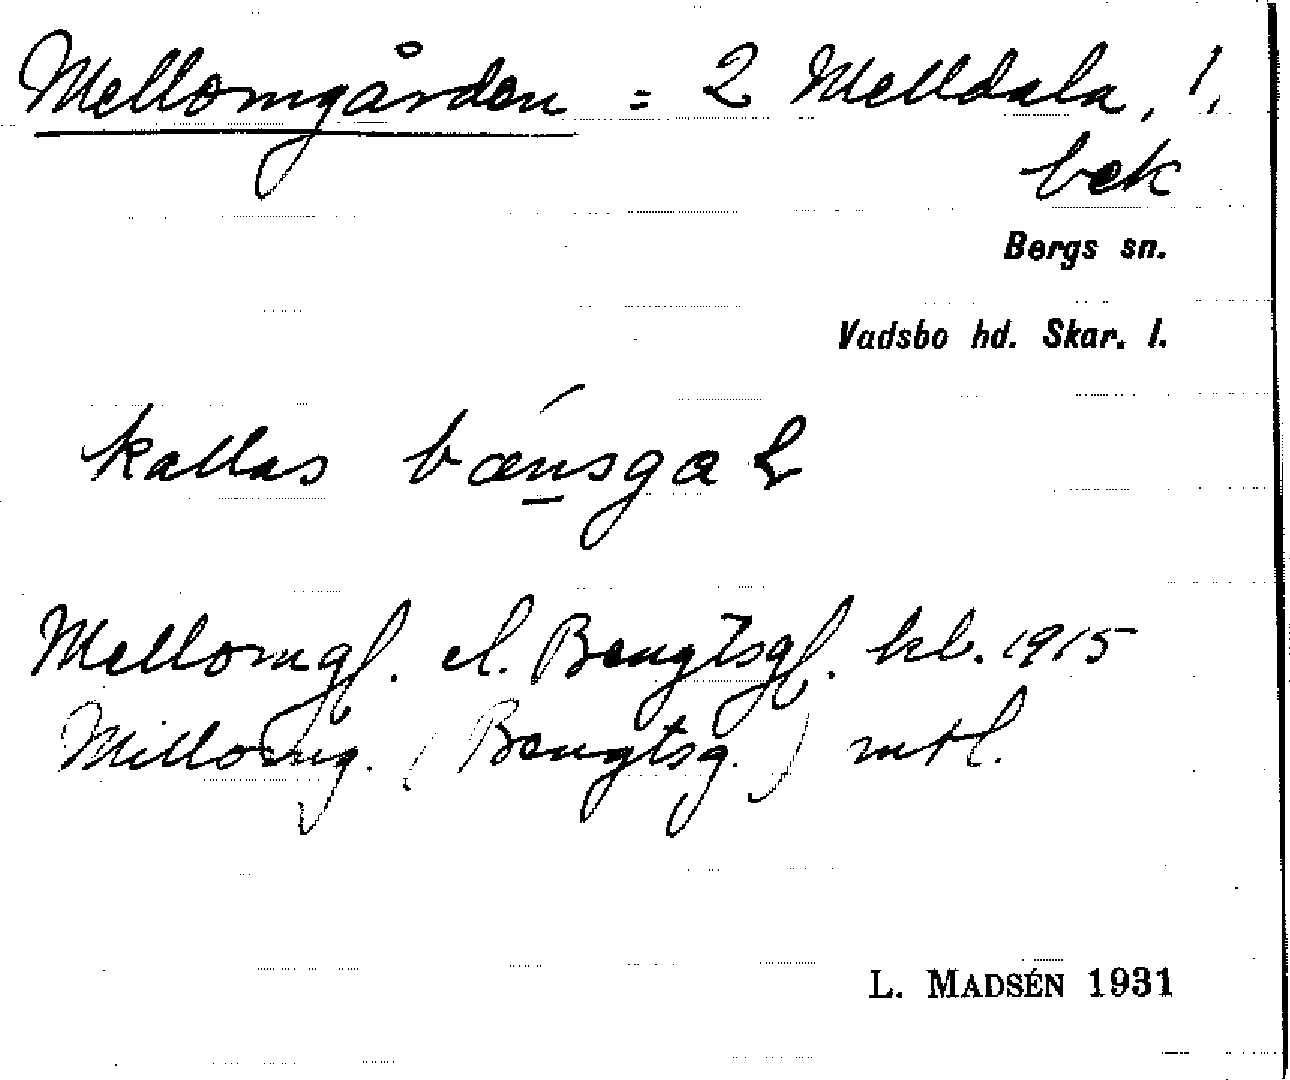 Mellomgården = 2 Melldala, 1,
bek
Bergs sn.
Vadsbo hd. Skar. l.
kallas
Mellomgf. el. Bengtsgf. kb. 1915
Mellomg. (Bengtsg.) mtl.
L. MADSÉN 1931